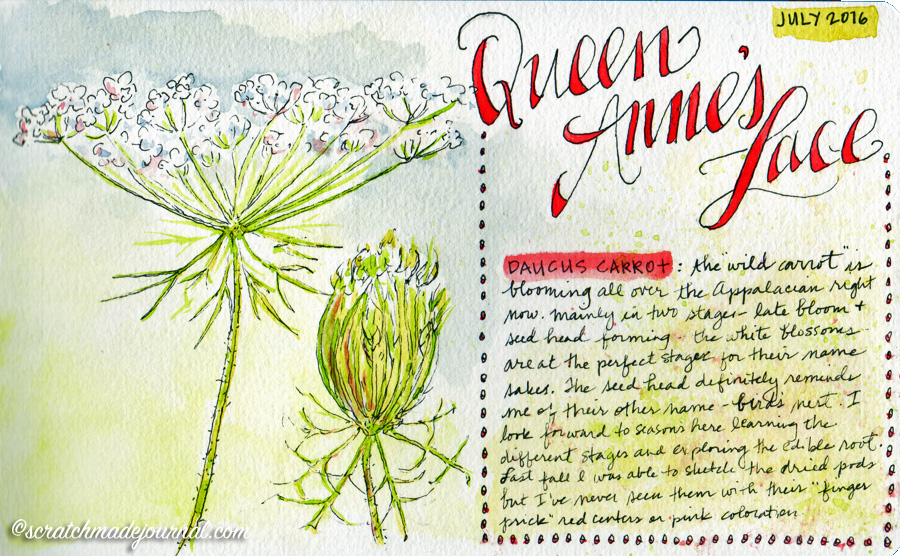 JULY 2016
Queen
Anne's
Lace
DAUCUS CARROT: the "wild carrot" is
blooming all over the Appalacian right
now. Mainly in two stages - late bloom +
seed head forming - the white blossoms
are at the perfect stage for their name
sakes. The seed head definitely reminds
me of their other name - birds nest. I
look forward to seasons here learning the
different stages and exploring the edible root.
Last fall I was able to sketch the dried pods
but I've never seen them with their "finger
prick" red centers or pink coloration
©scratchmadejournal.com